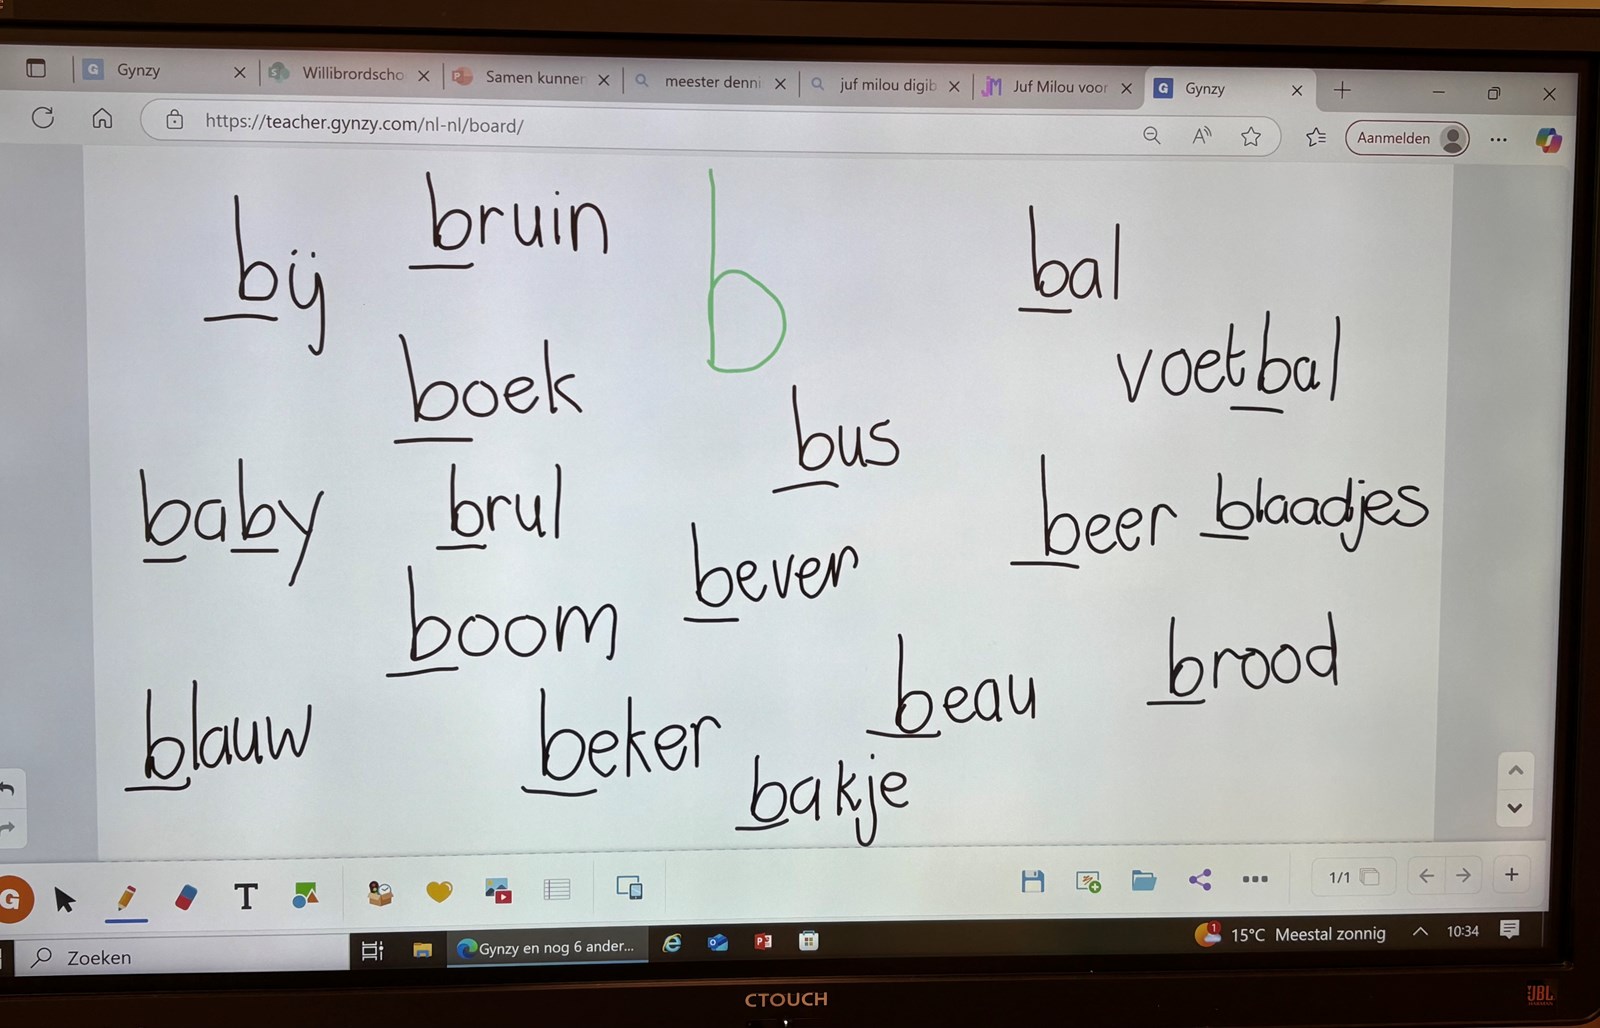 Gynzy
Willibrordscho
Samen kunner
meester denni
juf milou digib
Juf Milou voor
Gynzy
https://teacher.gynzy.com/nl-nl/board/
Aanmelden
bij
bruin
b
bal
voetbal
boek
bus
baby
brul
beer
blaadjes
bever
boom
brood
beau
blauw
beker
bakje
G
T
1/1
Zoeken
Gynzy en nog 6 ander...
1
15°C Meestal zonnig
10:34
CTOUCH
JBL